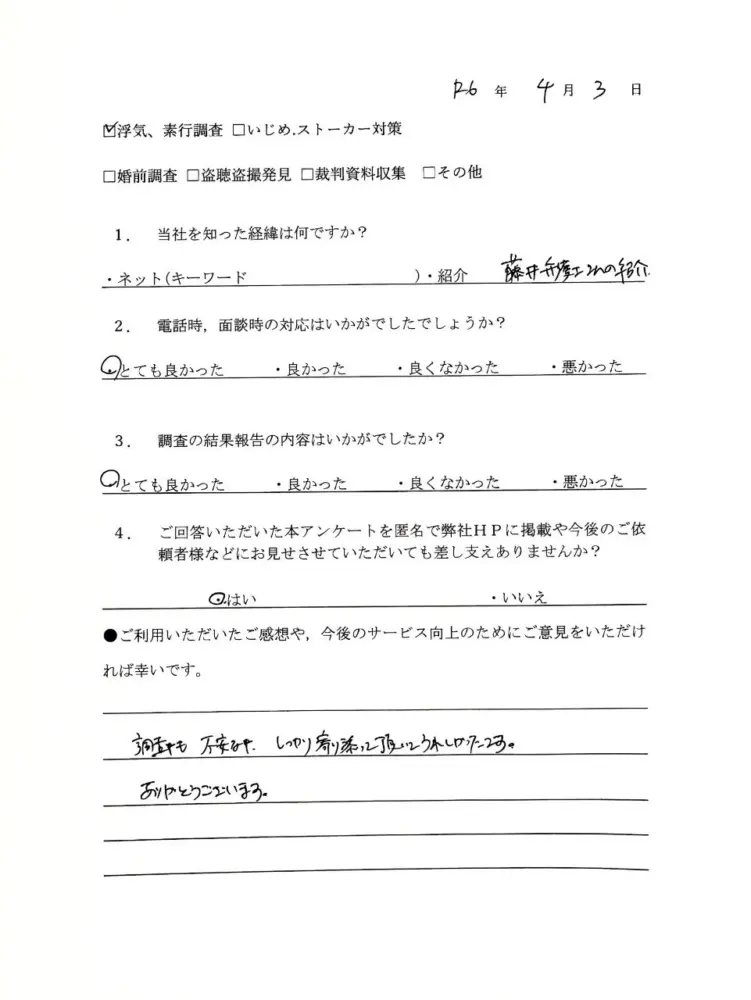 R6 年 4月 3 日
☑浮気、素行調査 □いじめ.ストーカー対策
□婚前調査 □盗聴盗撮発見 □裁判資料収集 □その他
1. 当社を知った経緯は何ですか？
・ネット(キーワード )・紹介 藤井弁護士さんの紹介
2. 電話時，面談時の対応はいかがでしたでしょうか？
・とても良かった ・良かった ・良くなかった ・悪かった
3. 調査の結果報告の内容はいかがでしたか？
・とても良かった ・良かった ・良くなかった ・悪かった
4. ご回答いただいた本アンケートを匿名で弊社ＨＰに掲載や今後のご依
頼者様などにお見せさせていただいても差し支えありませんか？
・はい ・いいえ
●ご利用いただいたご感想や，今後のサービス向上のためにご意見をいただけ
れば幸いです。
調査中も 不安な中 しっかり寄り添って頂いてうれしかったです。
ありがとうございます。